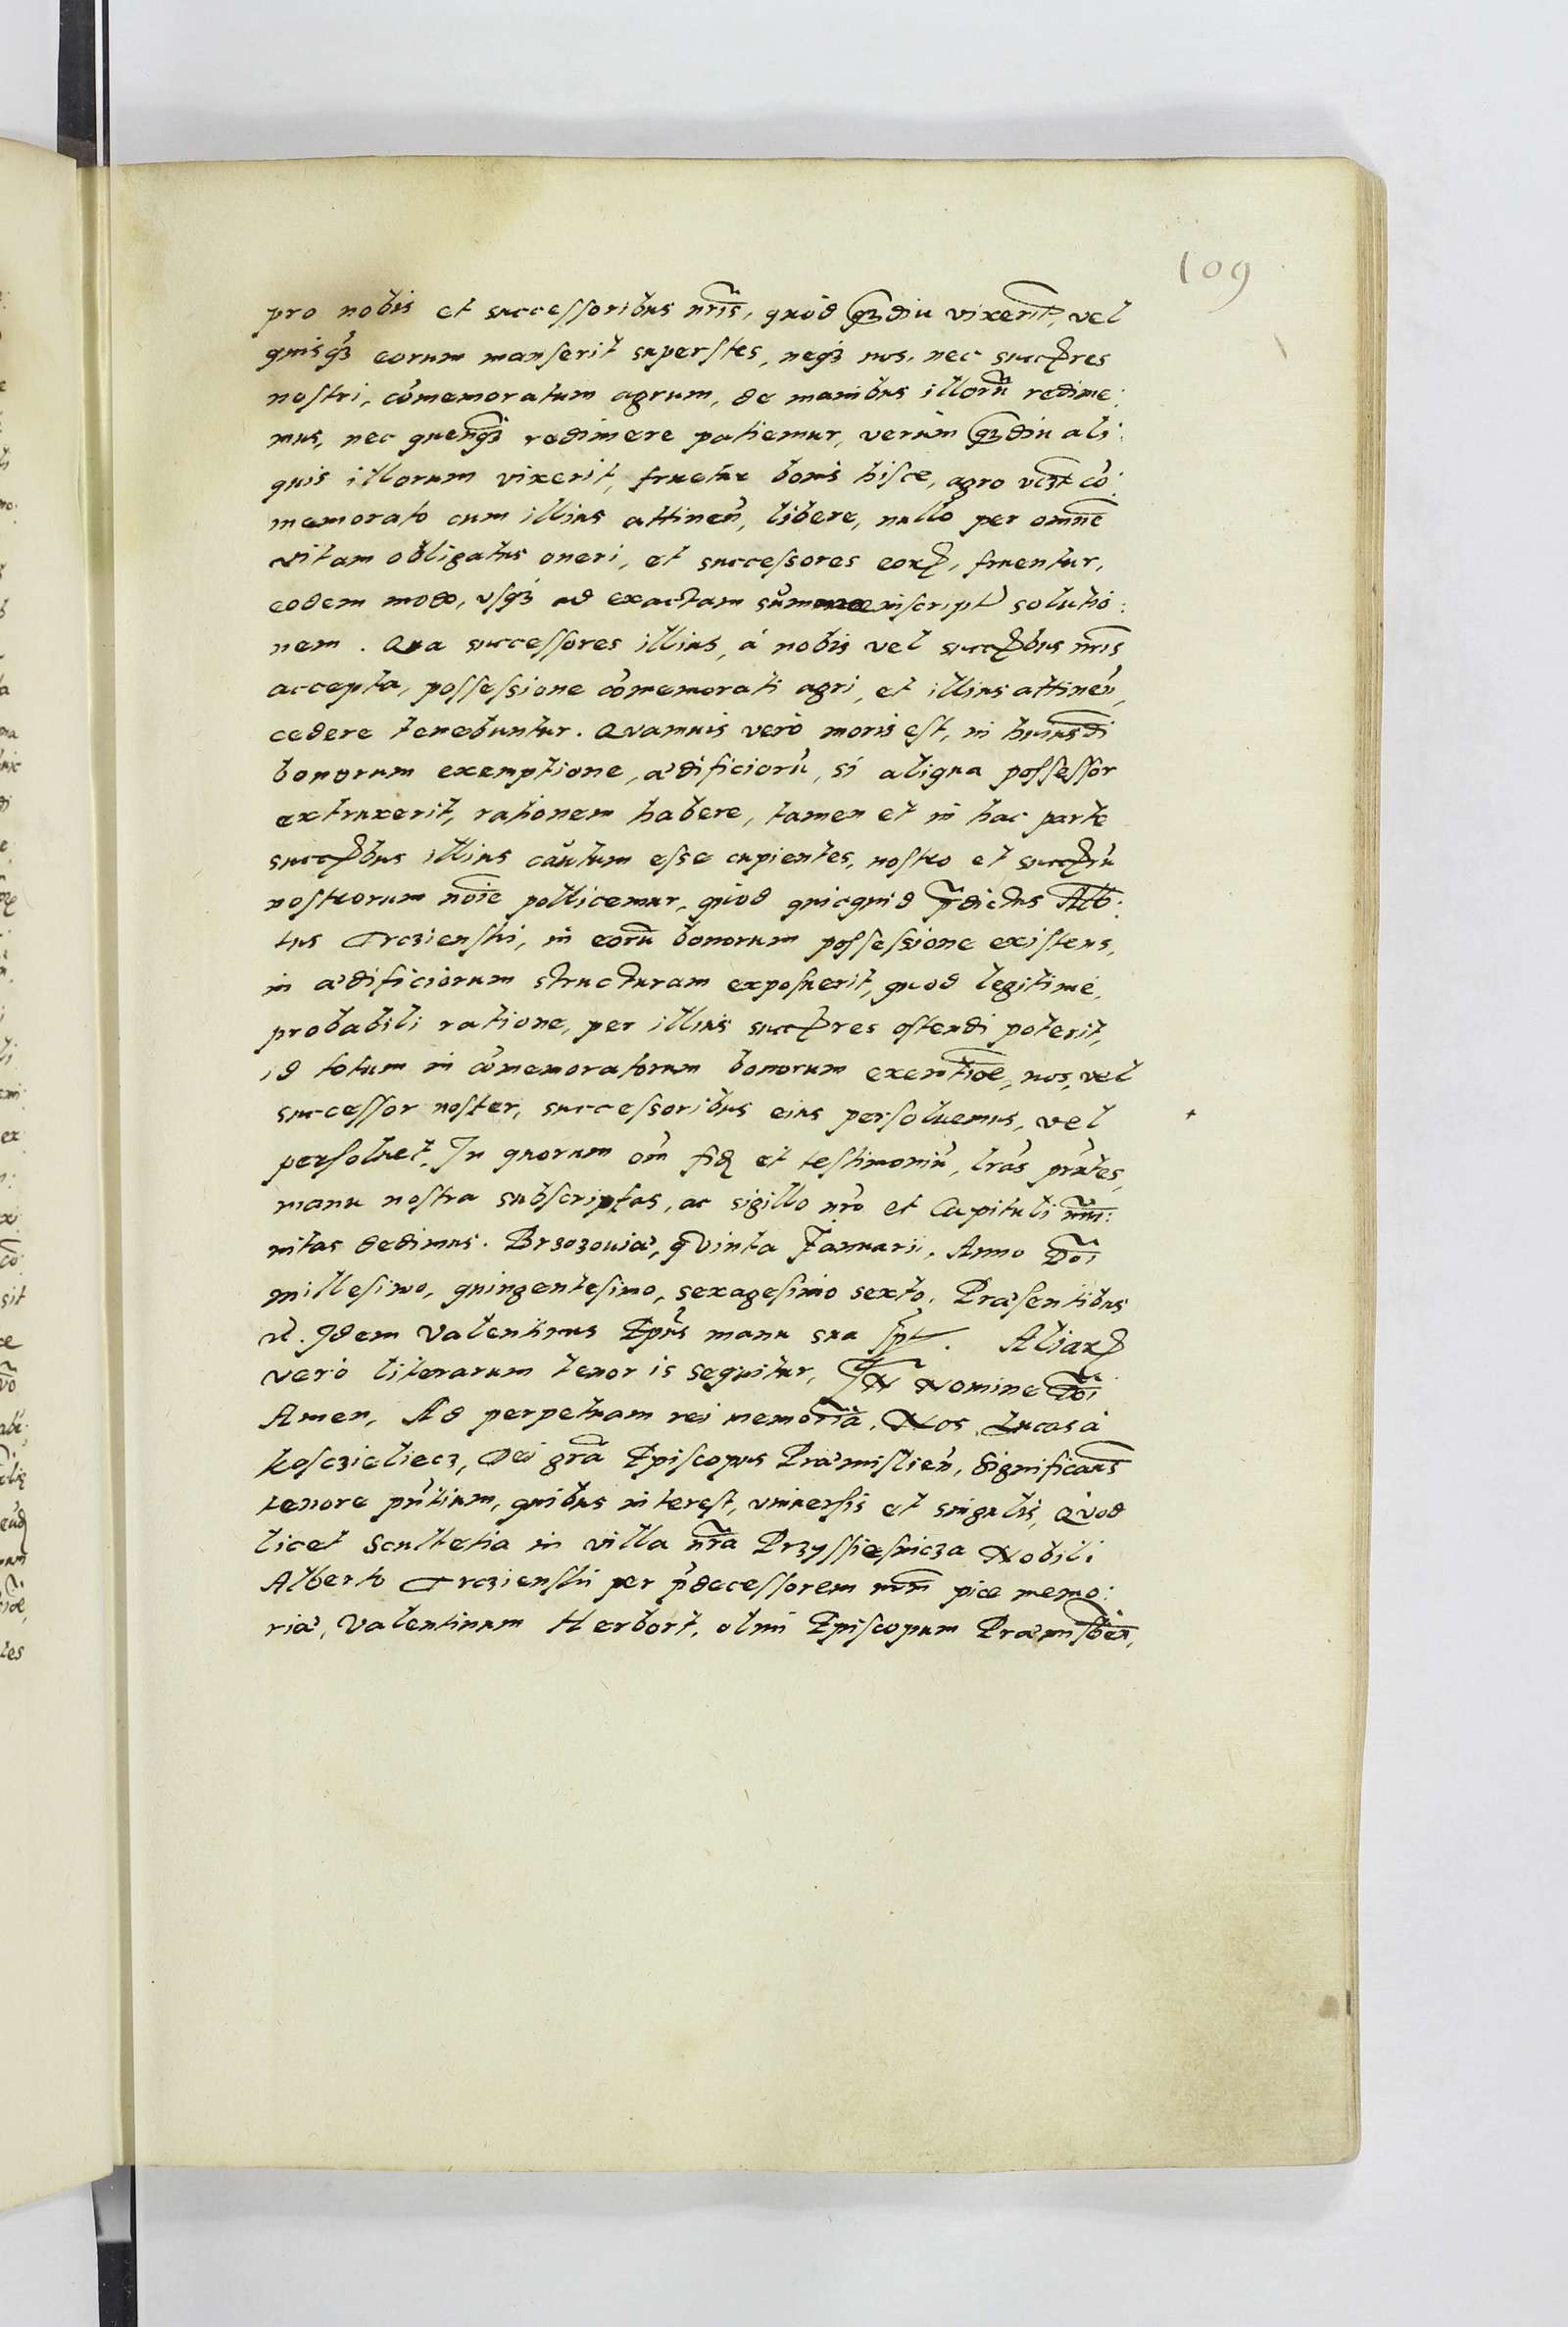 109
pro nobis et successoribus nr̃is, quòd qʒ̃diu vixerint, vel
quisqʒ eorum manserit superstes, neqʒ nos, nec succ̃res
nostri, com̃emoratum agrum, de manibus illorũ redime:
mus, nec quenqʒ̃ redimere patiemur, verùm qʒ̃diu ali:
quis illorum vixerit, fruetur bonis hisce, agro vcʒt cõ:
memorato cum illius attineñ, libere, nullo per omnẽ
vitam obligatus oneri, et successores eorꝝ, fruentur,
eodem modo, vsqʒ ad exactam summae inscript̃ solutio:
nem. Qua successores illius, à nobis vel succ̃bus nr̃is
accepta, possessione com̃emorati agri, et illius attineñ,
cedere tenebuntur. Quamuis verò moris est, in huiusdi
bonorum exemptione, ædificiorũ, si aliqua possessor
extruxerit, rationem habere, tamen et in hac parte
succ̃bus illius cautum esse cupientes, nostro et succ̃rũ
nostrorum noĩe pollicemur, quòd quicquid p̃dictus Alb:
tus Trczienski, in eorũ bonorum possessione existens,
in ædificiorum structuram exposuerit, quod legitimè,
probabili ratione, per illius succ̃res ostendi poterit,
id totum in com̃emoratorum bonorum exemtiõe, nos, vel
successor noster, successoribus eius persoluemus, vel
persoluet. In quorum om̃ fidẽ et testimoniũ, lrãs pñtes,
manu nostra subscriptas, ac sigillo nrõ et Capituli mũ:
nitas dedimus. Brzozouiæ, qvinta Januarii, Anno Dõi
millesimo, quingentesimo, sexagesimo sexto. Præsentibus
ut̃. Idem Valentinus Ep̃us manu sua sp̃t. Aliarꝝ
verò literarum tenor is sequitur, IN Nomine Dõi
Amen, Ad perpetuam rei memoriã. Nos Lucas à
Kosczieliecz, Dei grã Episcopus Præmislieñ, Significam̃s
tenore pñtium, quibus interest, vniuersis et singulis, Qvod
licet Scultetia in villa nr̃a Przyssiesnicza Nobili
Alberto Trczienski per p̃decessorem nrm̃ piæ memo:
riæ, Valentinum Herbort, olim Episcopum Præmisłieñ,